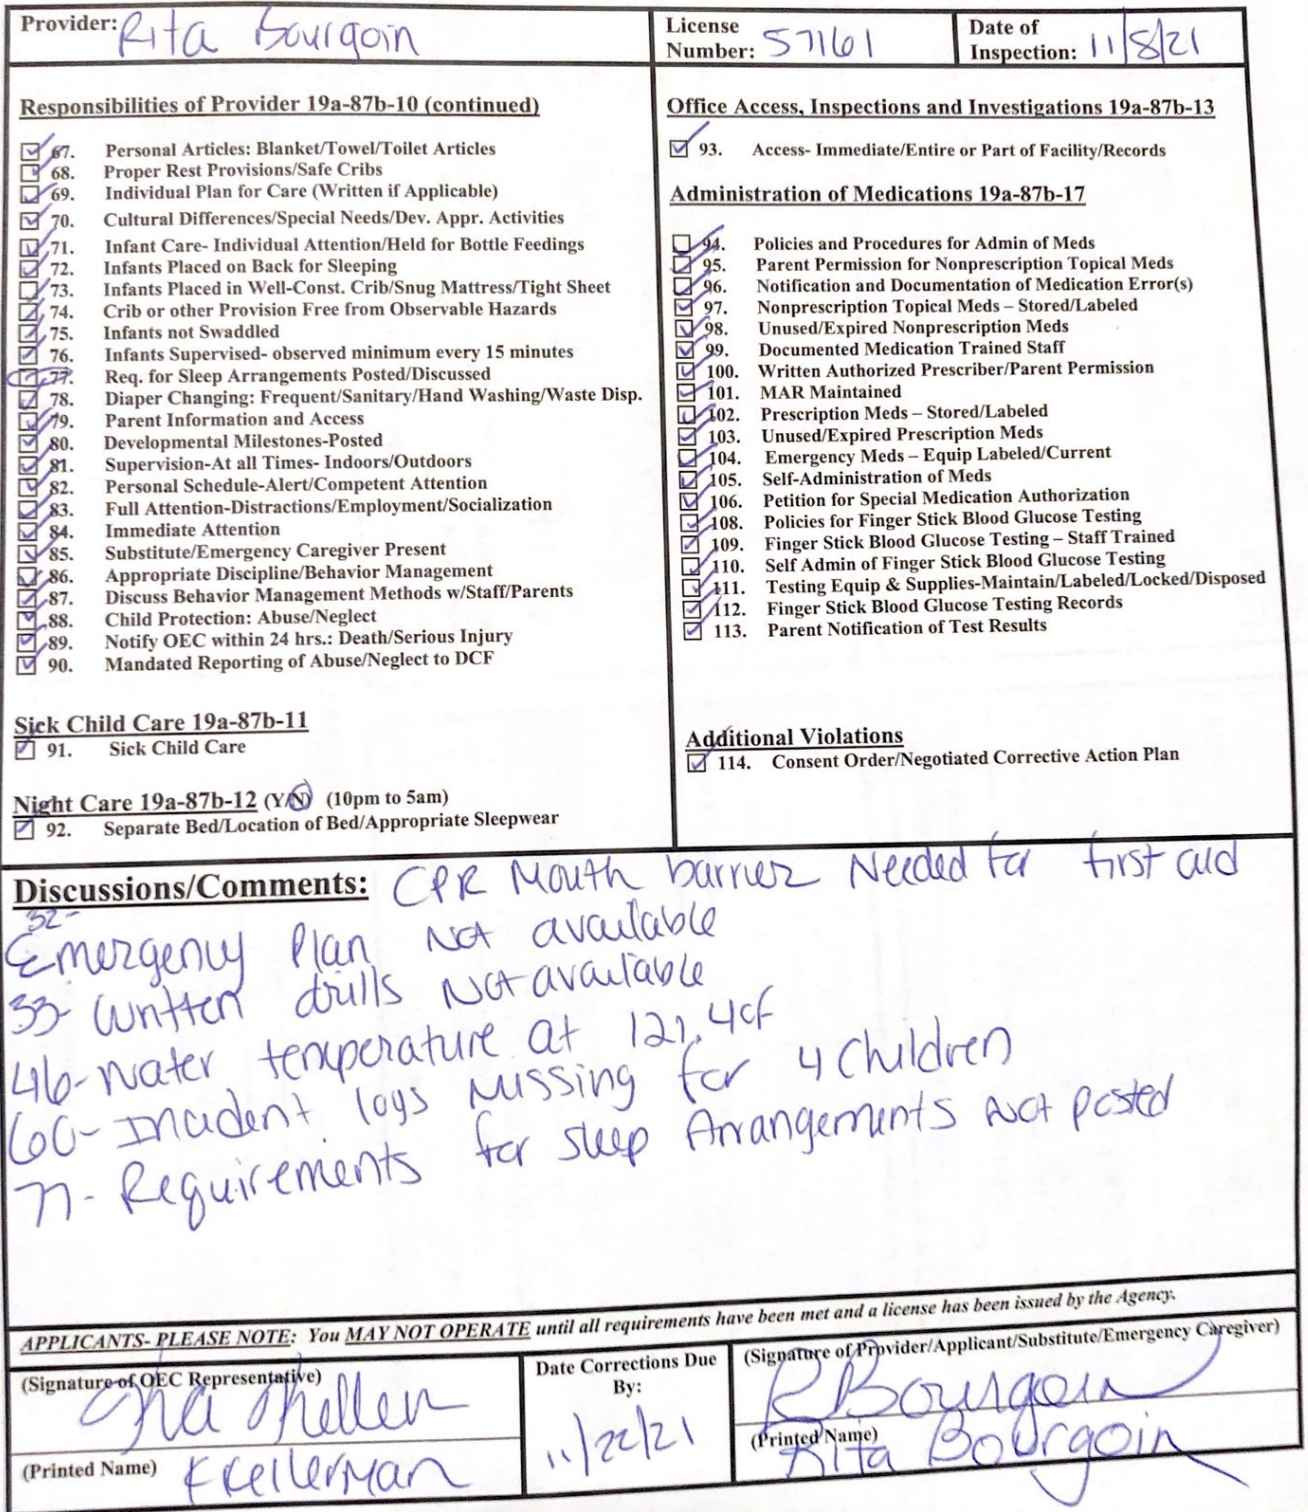 Provider: Rita Bourgoin
License Number: 57161
Date of Inspection: 11/8/21
Responsibilities of Provider 19a-87b-10 (continued)
67. Personal Articles: Blanket/Towel/Toilet Articles
68. Proper Rest Provisions/Safe Cribs
69. Individual Plan for Care (Written if Applicable)
70. Cultural Differences/Special Needs/Dev. Appr. Activities
71. Infant Care- Individual Attention/Held for Bottle Feedings
72. Infants Placed on Back for Sleeping
73. Infants Placed in Well-Const. Crib/Snug Mattress/Tight Sheet
74. Crib or other Provision Free from Observable Hazards
75. Infants not Swaddled
76. Infants Supervised- observed minimum every 15 minutes
77. Req. for Sleep Arrangements Posted/Discussed
78. Diaper Changing: Frequent/Sanitary/Hand Washing/Waste Disp.
79. Parent Information and Access
80. Developmental Milestones-Posted
81. Supervision-At all Times- Indoors/Outdoors
82. Personal Schedule-Alert/Competent Attention
83. Full Attention-Distractions/Employment/Socialization
84. Immediate Attention
85. Substitute/Emergency Caregiver Present
86. Appropriate Discipline/Behavior Management
87. Discuss Behavior Management Methods w/Staff/Parents
88. Child Protection: Abuse/Neglect
89. Notify OEC within 24 hrs.: Death/Serious Injury
90. Mandated Reporting of Abuse/Neglect to DCF
Sick Child Care 19a-87b-11
91. Sick Child Care
Night Care 19a-87b-12 (Y/N) (10pm to 5am)
92. Separate Bed/Location of Bed/Appropriate Sleepwear
Office Access, Inspections and Investigations 19a-87b-13
93. Access- Immediate/Entire or Part of Facility/Records
Administration of Medications 19a-87b-17
94. Policies and Procedures for Admin of Meds
95. Parent Permission for Nonprescription Topical Meds
96. Notification and Documentation of Medication Error(s)
97. Nonprescription Topical Meds – Stored/Labeled
98. Unused/Expired Nonprescription Meds
99. Documented Medication Trained Staff
100. Written Authorized Prescriber/Parent Permission
101. MAR Maintained
102. Prescription Meds – Stored/Labeled
103. Unused/Expired Prescription Meds
104. Emergency Meds – Equip Labeled/Current
105. Self-Administration of Meds
106. Petition for Special Medication Authorization
108. Policies for Finger Stick Blood Glucose Testing
109. Finger Stick Blood Glucose Testing – Staff Trained
110. Self Admin of Finger Stick Blood Glucose Testing
111. Testing Equip & Supplies-Maintain/Labeled/Locked/Disposed
112. Finger Stick Blood Glucose Testing Records
113. Parent Notification of Test Results
Additional Violations
114. Consent Order/Negotiated Corrective Action Plan
Discussions/Comments: CPR Mouth barrier Needed for first aid
32-
Emergency Plan Not available
33- Written drills Not available
46- Water temperature at 121.4 of
60- Incident logs Missing for 4 Children
77- Requirements for sleep Arrangements Not posted
APPLICANTS- PLEASE NOTE: You MAY NOT OPERATE until all requirements have been met and a license has been issued by the Agency.
(Signature of OEC Representative)
(Printed Name) K Kellerman
Date Corrections Due By:
11/22/21
(Signature of Provider/Applicant/Substitute/Emergency Caregiver)
R Bourgoin
(Printed Name) Rita Bourgoin